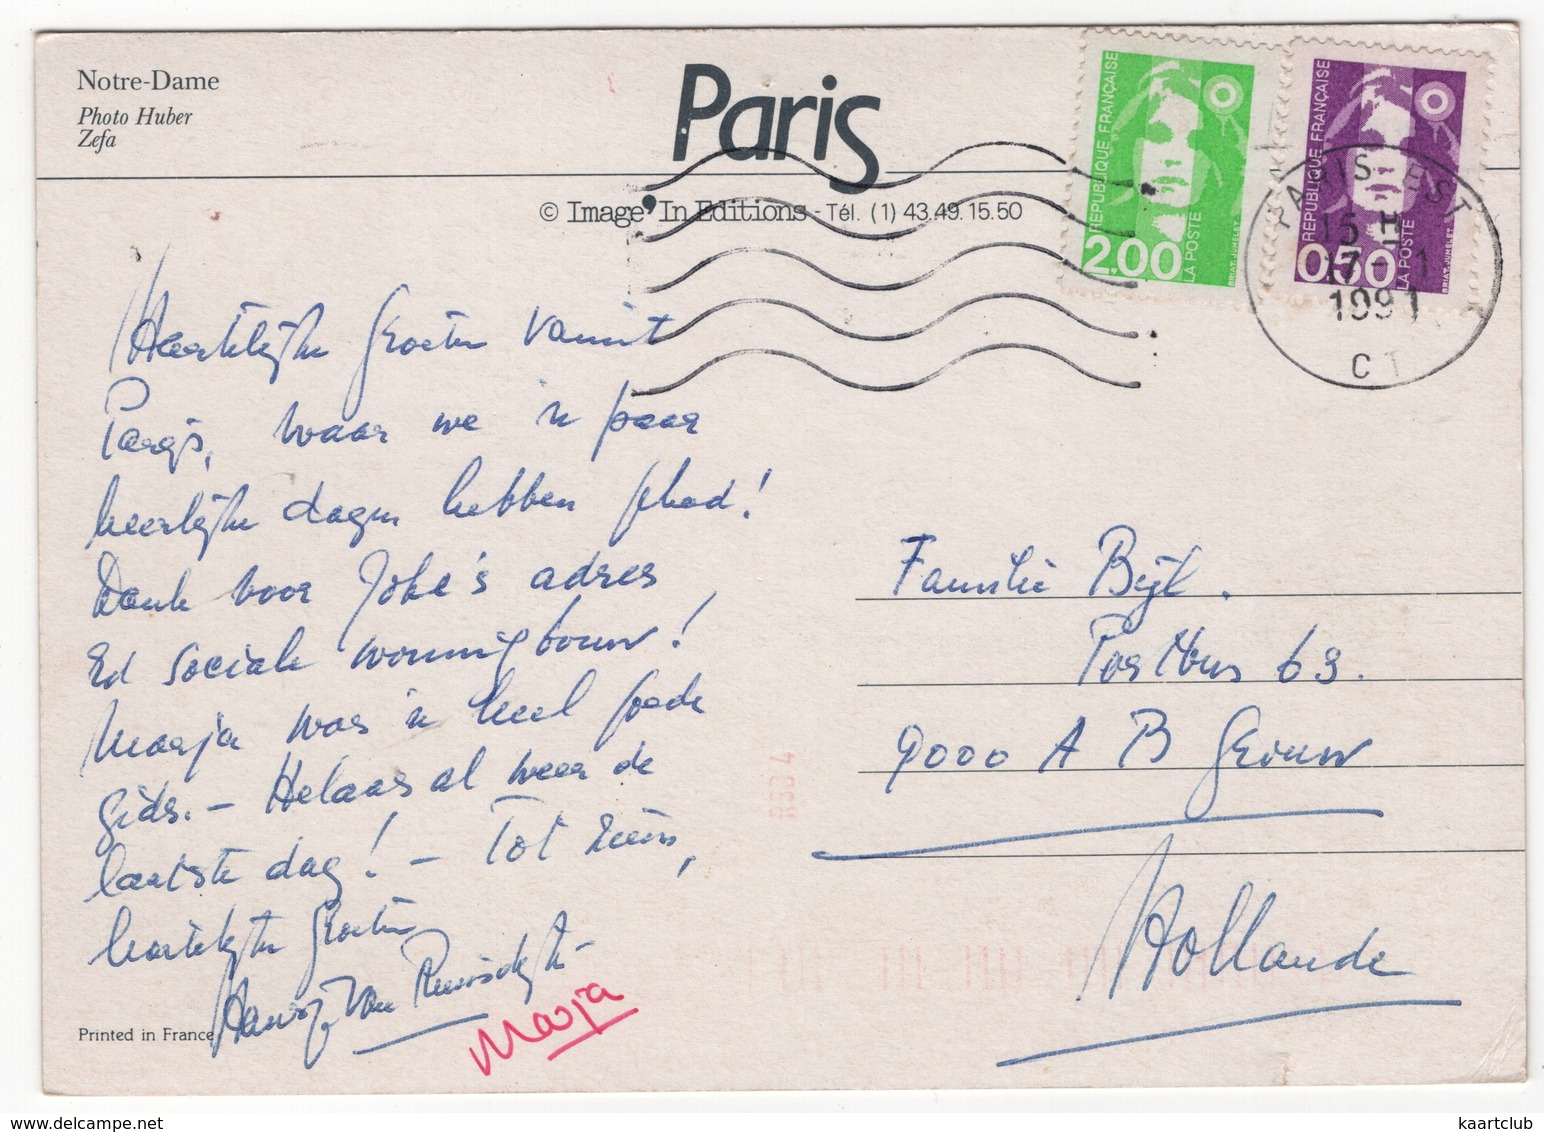 Notre-Dame
Photo Huber
Zefa
Paris
© Image'In Editions - Tél. (1) 43.49.15.50
REPUBLIQUE FRANÇAISE
2.00
LA POSTE
BRIAT-JUMELET
REPUBLIQUE FRANÇAISE
0.50
LA POSTE
BRIAT-JUMELET
PARIS EST
15 H
17 - 1
1991
CT
Hartelijke Groeten vanuit
Parijs, waar we 'n paar
heerlijke dagen hebben gehad!
Dank voor Joke's adres
Ed sociale woningbouw!
Marja was 'n heel goede
gids. - Helaas al weer de
laatste dag! - Tot ziens,
hartelijke Groeten
van
Marja
Familie Bijl.
Postbus 63.
9000 A B Grouw
Hollande
R334
Printed in France
www.delcampe.net
kaartclub